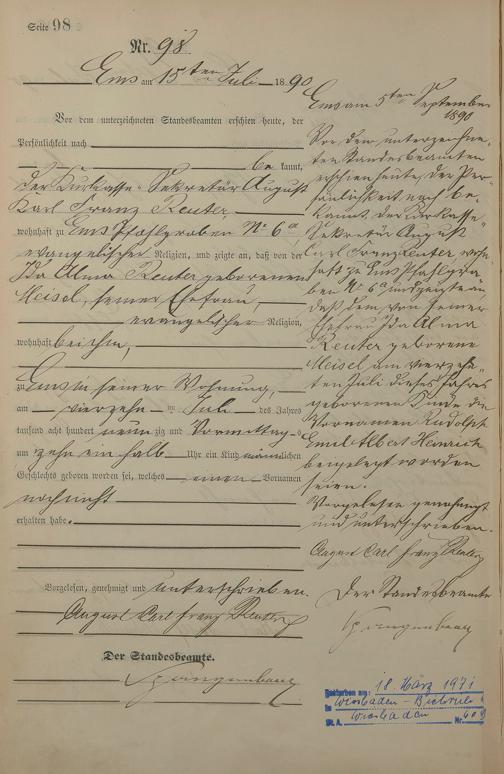 Seite 98
Nr. 98
Ems am 15ten Juli 1890
Vor dem unterzeichneten Standesbeamten erschien heute, der
Persönlichkeit nach
be kannt,
der Kurkasse-Sekretär August
Karl Franz Reuter,
wohnhaft zu Ems Pfahlgraben No 6a,
evangelischer Religion, und zeigte an, daß von der
Ida Alma Reuter geborenen
Meisel, seiner Ehefrau,
evangelischer Religion,
wohnhaft bei ihm,
zu Ems in seiner Wohnung,
am vierzehn ten Juli des Jahres
tausend acht hundert neun zig und Vormittag
um zehn ein halb Uhr ein Kind männlichen
Geschlechts geboren worden sei, welches einen Vornamen
noch nicht
erhalten habe.
Vorgelesen, genehmigt und unterschrieben.
August Carl Franz Reuter
Der Standesbeamte.
Ems am 5ten September
1890
Vor dem unterzeichne-
ten Standesbeamten
erschien heute, der Per-
sönlichkeit nach be-
kannt, der Kurkasse-
Sekretär August
Carl Franz Reuter, wohn-
haft zu Ems Pfahlgra-
ben No 6a und zeigte an,
daß dem von seiner
Ehefrau Ida Alma
Reuter geborene
Meisel am vierzehn-
ten Juli dieses Jahres
geborenen Kinde die
Vornamen Rudolph
Emil Albert Heinrich
beigelegt worden
seien.
Vorgelesen genehmigt
und unterschrieben.
August Carl Franz Reuter
Der Standesbeamte
Gestorben am: 18. März 1971
in Wiesbaden-Biebrich
St. A. Wiesbaden Nr.